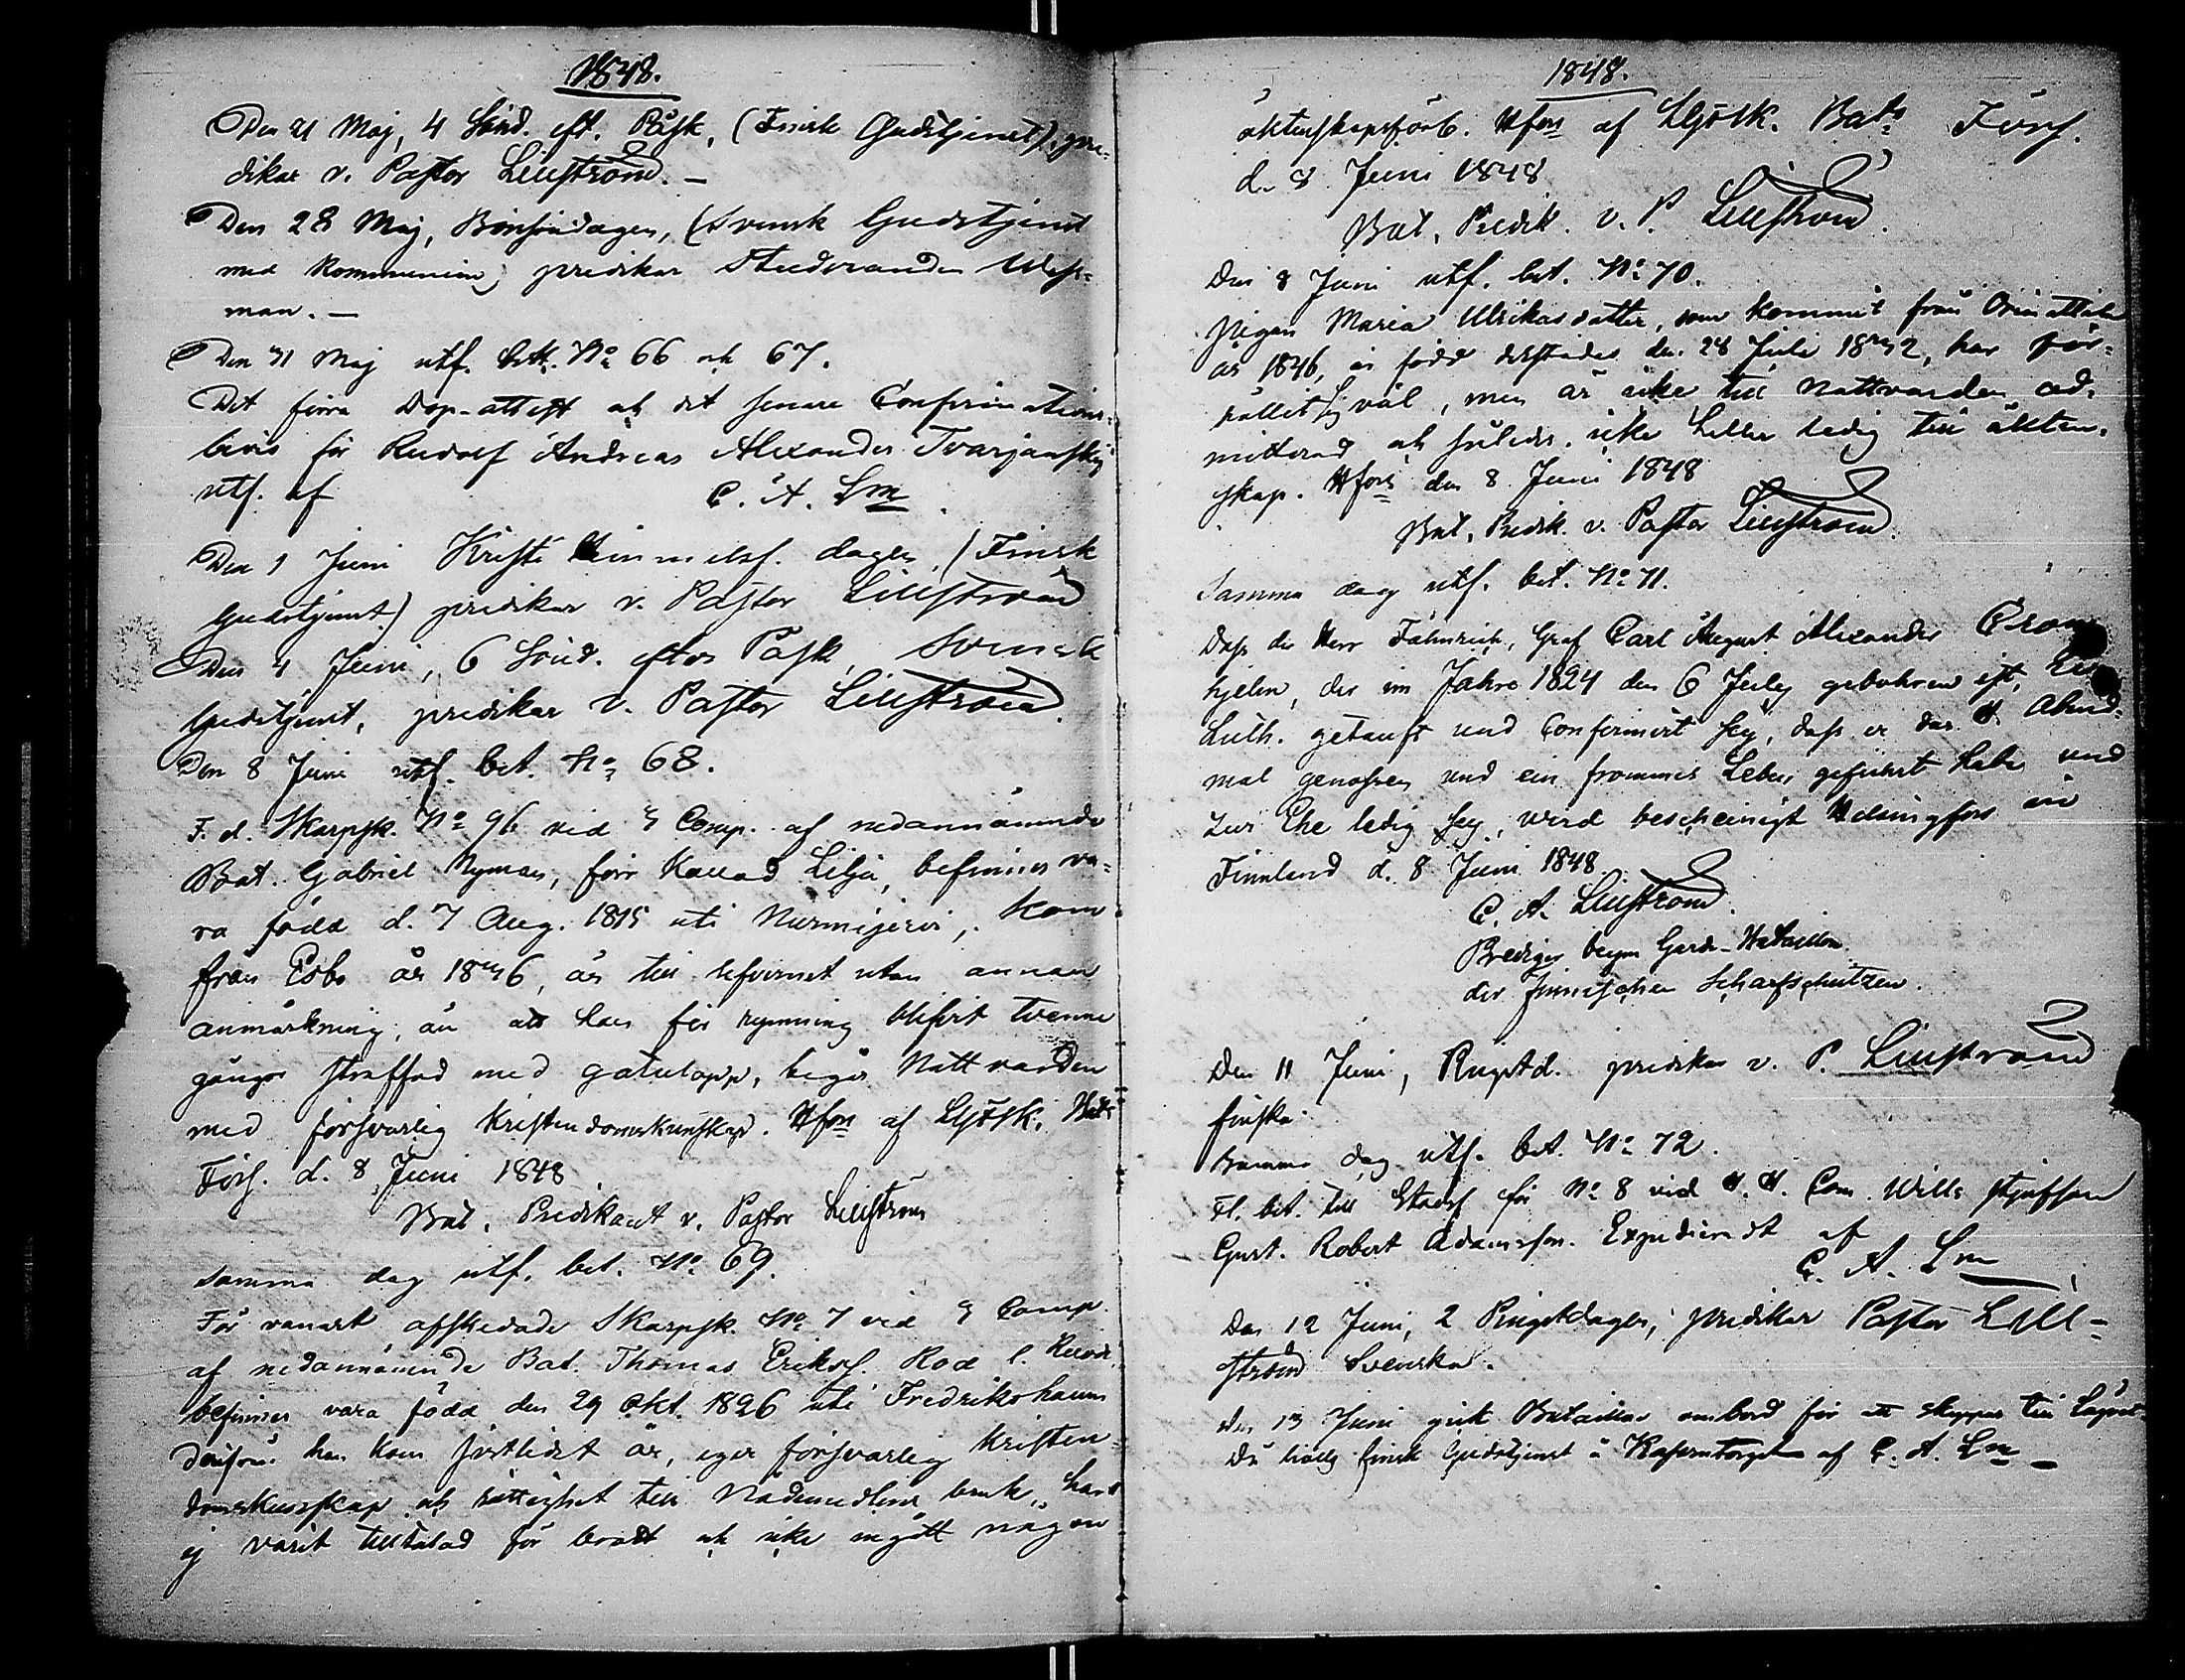 1848.
Den 21 Maj, 4 Sönd. eft. Påsk, (Finsk Gudstjenst), pre-
dikar v. Pastor Lillström. —
Den 28 Maj, Bönsöndagen, (Svensk Gudstjenst
med kommunion) predikar Studeranden Wess-
man. —
Den 31 Maj utf. bett. No 66 och 67.
Det förra Dop-attest och det senare Confirmations-
bevis för Rudolf Andreas Alexander Tvarjanskij
utf. af C. A. Lm
Den 1 Juni Kristi Himmelsf. dagen, (Finsk
Gudstjenst) predikar v. Pastor Lillström
Den 4 Juni, 6 Sönd. efter Påsk, Svensk
Gudstjenst, predikar v. Pastor Lillström.
Den 8 Juni utf. bet. No 68.
F. d. Skarpsk. No 96 vid 3 Comp. af nedannämnde
Bat. Gabriel Nyman, förr kallad Lilja, befinnes va-
ra född d. 7 Aug. 1815 uti Nurmijervi, kom
från Esbo år 1836, är till lefvernet utan annan
anmärkning, än att han för rymning blifvit tvenne
gånger straffad med gatulopp, begår Nattvarden
med försvarlig kristendomskunskap. Hfors af LgFSk. Bats
Förs. d. 8 Juni 1848
Bat. Predikant v. Pastor Lillström
Samma dag utf. bet. No 69.
För vanart afskedade Skarpsk. No 7 vid 3 Comp.
af nedannämnde Bat. Thomas Eriksf. Rod l.
befinnes vara född den 29 Okt. 1826 uti Fredrikshamn
derifrån han kom förtlidet år, eger försvarlig kristen-
domskunskap och rättighet till Nådemedlens bruk, har
ej varit tilltalad för brott och icke ingått någon
1848.
äktenskapsförb. Hfors af LgFSk. Bats Förs.
d. 8 Juni 1848
Bat. Predik. v. P. Lillström.
Den 8 Juni utf. bet. No 70.
Pigan Maria Ulrikasdotter, som kommit från Orimattila
år 1846, är född derstädes den 28 Juli 1832, har för-
hållit sig väl, men är icke till Nattvarden ad-
mitterad och således icke heller ledig till äkten-
skap. Hfors den 8 Juni 1848
Bat. Predik. v. Pastor Lillström.
Samma dag utf. bet. No 71.
Dass der Herr Fähnrich, Graf Carl August Alexander Cron-
hjelm, der im Jahre 1824 den 6 July gebohren ist, Ev.
Luth. getauft und Confirmirt sey, dass er das H. Abend-
mal genossen und ein frommes Leben geführt habe und
zur Ehe ledig sey, wird bescheinigt Helsingfors in
Finnland d. 8 Juni 1848.
C. A. Lillström.
Prediger beym Garde-Bataillon
der finnischen Scharfschützen.
Den 11 Juni, Pingstd. predikar v. P. Lillström
finska.
Samma dag utf. bet. No 72.
Fl. bet. till för No 8 vid Com. Wills styfson
Gust. Robert Adamsson. Expedieradt af
C. A. Lm
Den 12 Juni, 2 Pingstdagen, predikar Pastor Lill-
ström Svenska.
Den 13 Juni gick Bataillon ombord för att skeppas till
Då hölls finsk Gudstjenst å Kaserntorget af C. A. Lm —